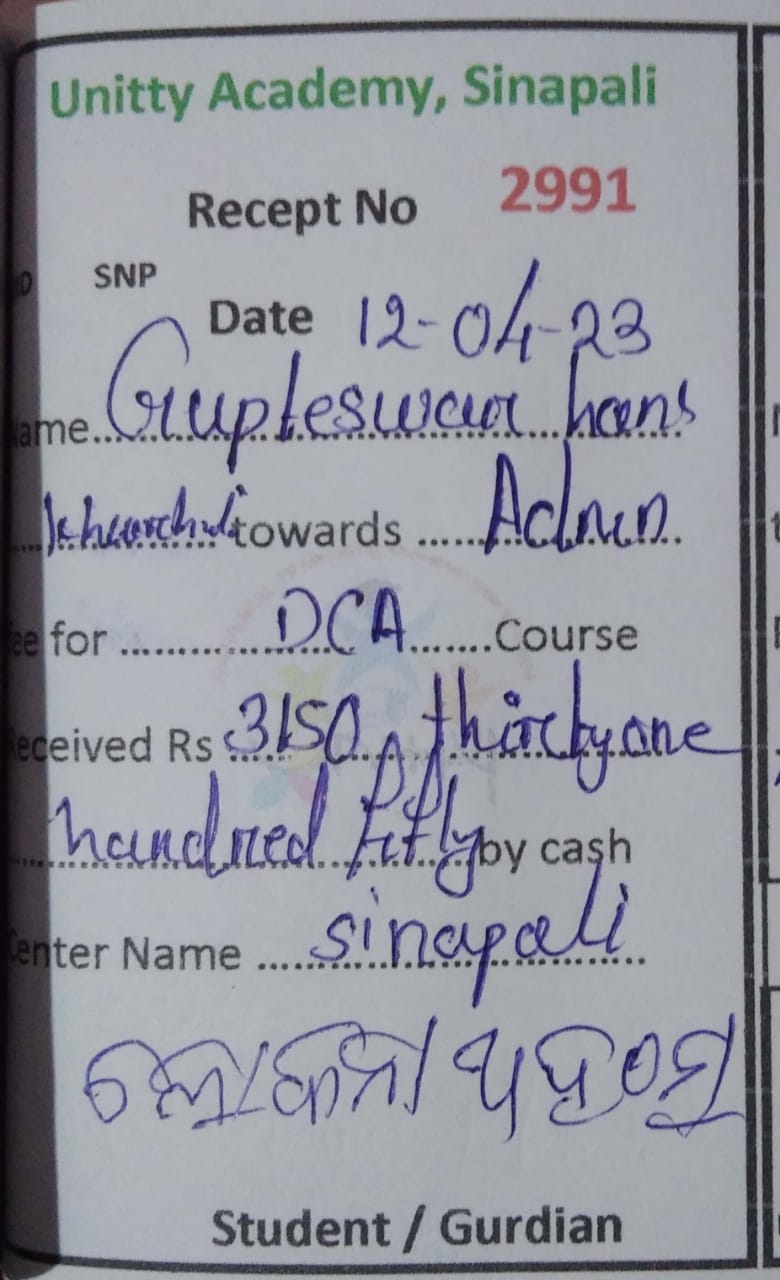 Unitty Academy, Sinapali
Recept No 2991
SNP
Date 12-04-23
ame Grupteswar hans
towards Admn
ee for DCA Course
eceived Rs 3150 thirtyone
handred fifty by cash
enter Name sinapali
Student / Gurdian